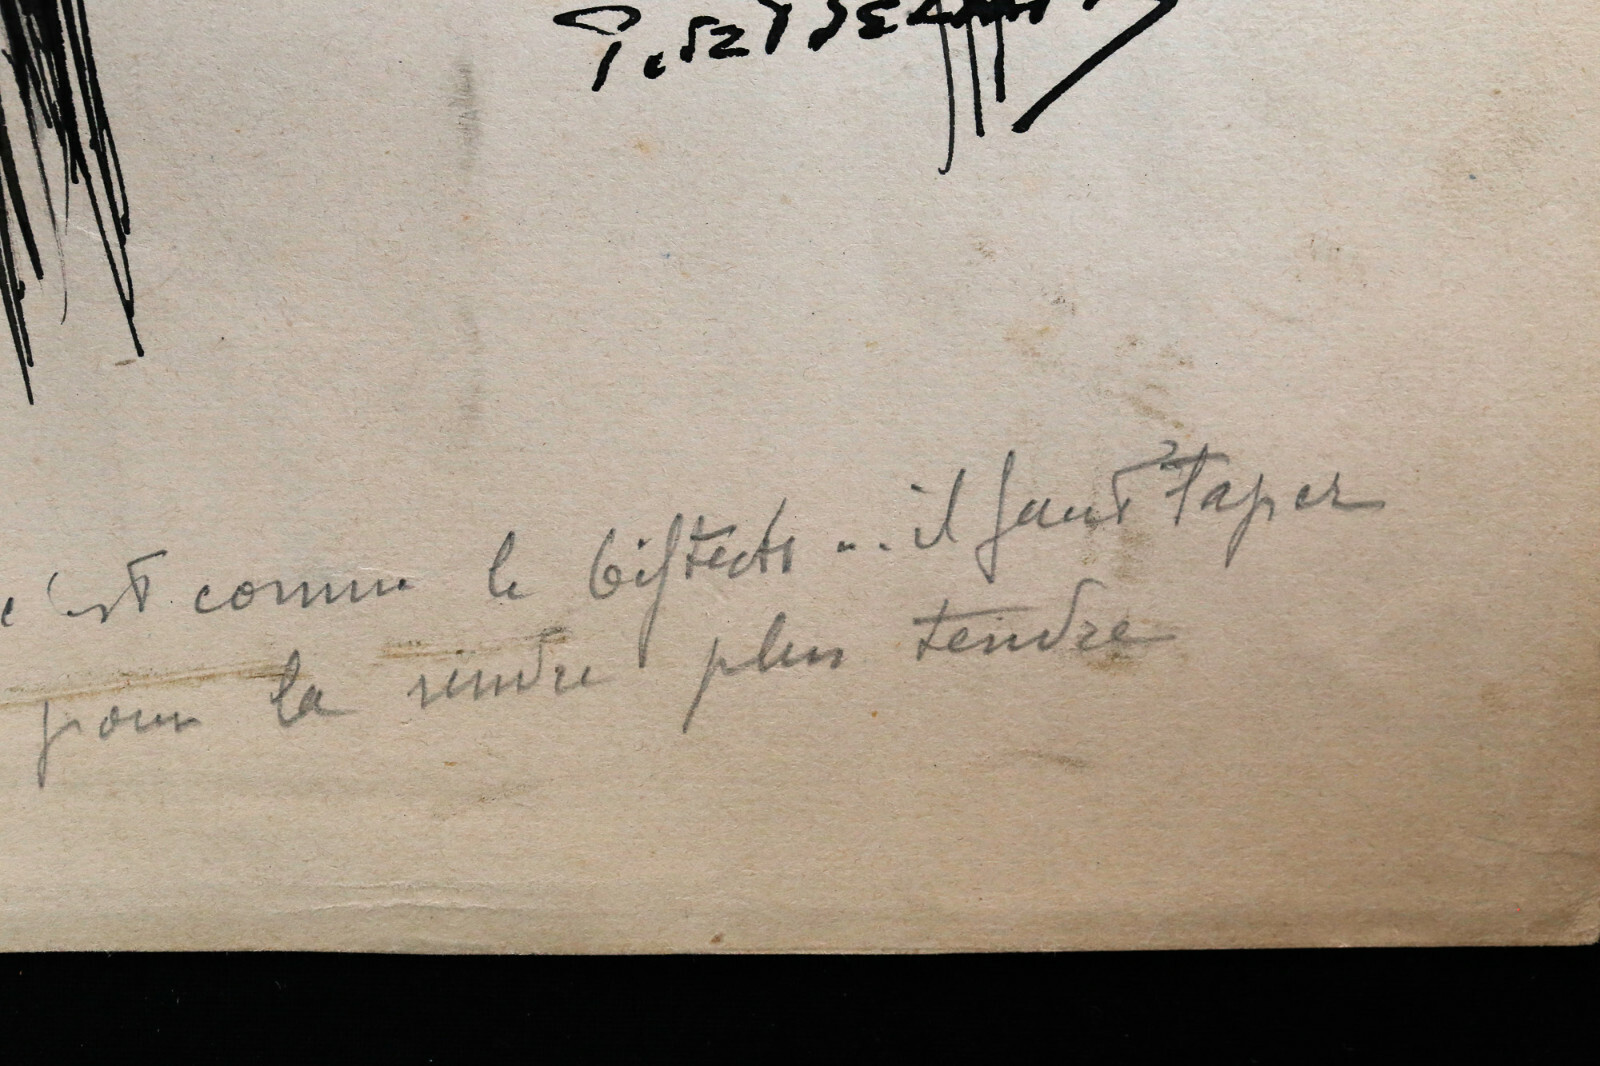 c'est comme le bifteck ... il faut taper
pour la rendre plus tendre